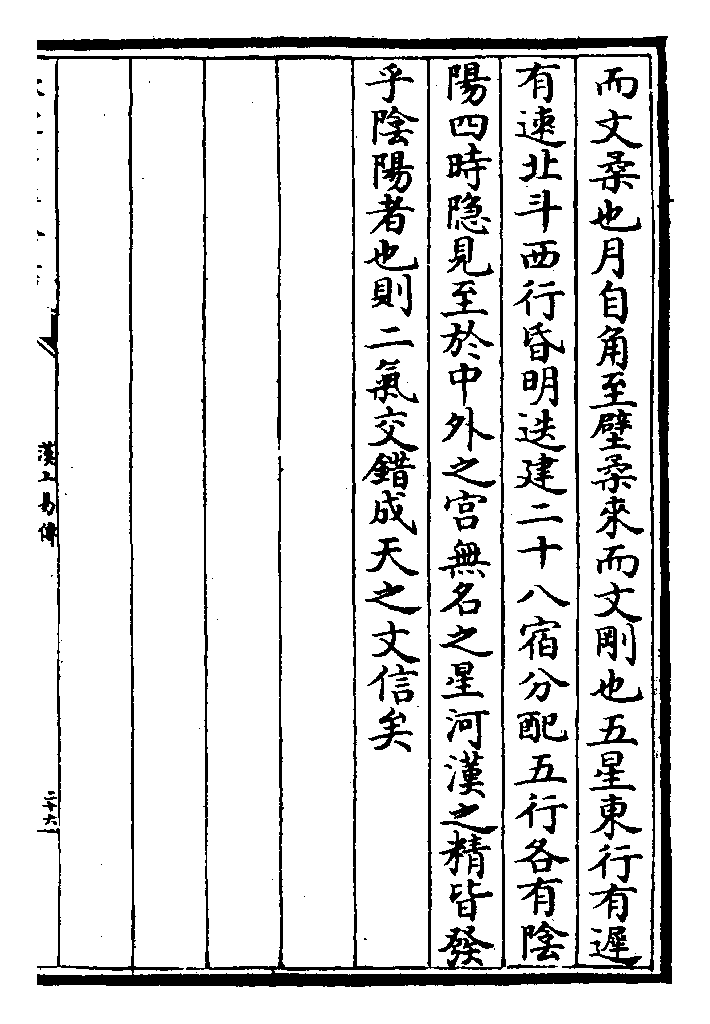 而文柔也月自角至壁柔來而文剛也五星東行有遲
有速北斗西行昏明迭建二十八宿分配五行各有陰
陽四時隐見至於中外之宫無名之星河漢之精皆發
乎陰陽者也則二氣交錯成天之文信矣
漢上易傳
二十六